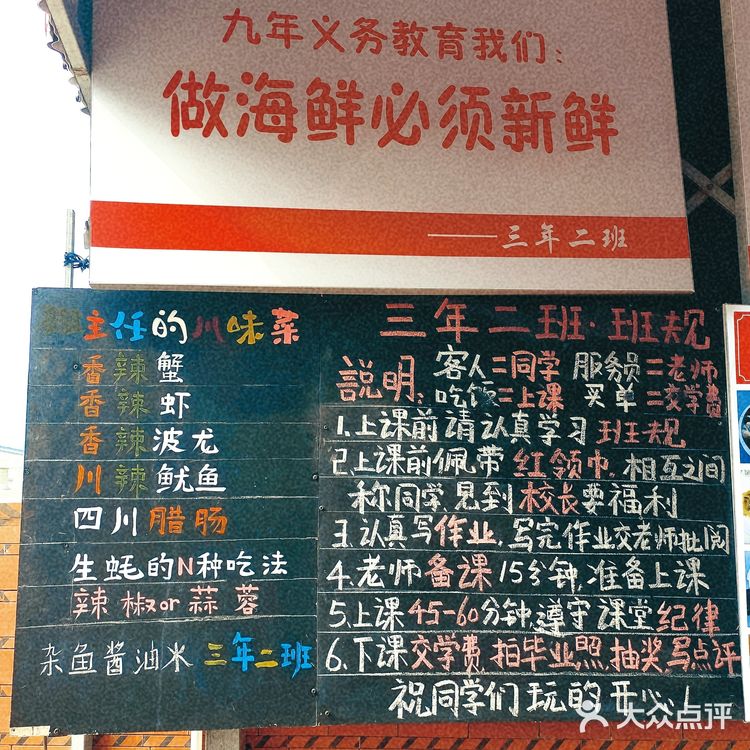 九年义务教育我们:
做海鲜必须新鲜
——三年二班
主任的川味菜
香辣蟹
香辣虾
香辣波龙
川辣鱿鱼
四川腊肠
生蚝的N种吃法
辣椒or蒜蓉
杂鱼酱油水 三年二班
三年二班·班规
説明: 客人=同学 服务员=老师
吃饭=上课 买单=交学费
1.上课前请认真学习班规
2.上课前佩带红领巾,相互之间
称同学见到校长要福利
3.认真写作业,写完作业交老师批阅
4.老师备课15分钟,准备上课
5.上课45-60分钟,遵守课堂纪律
6.下课交学费,拍毕业照,抽奖写点评
祝同学们玩的开心!
大众点评